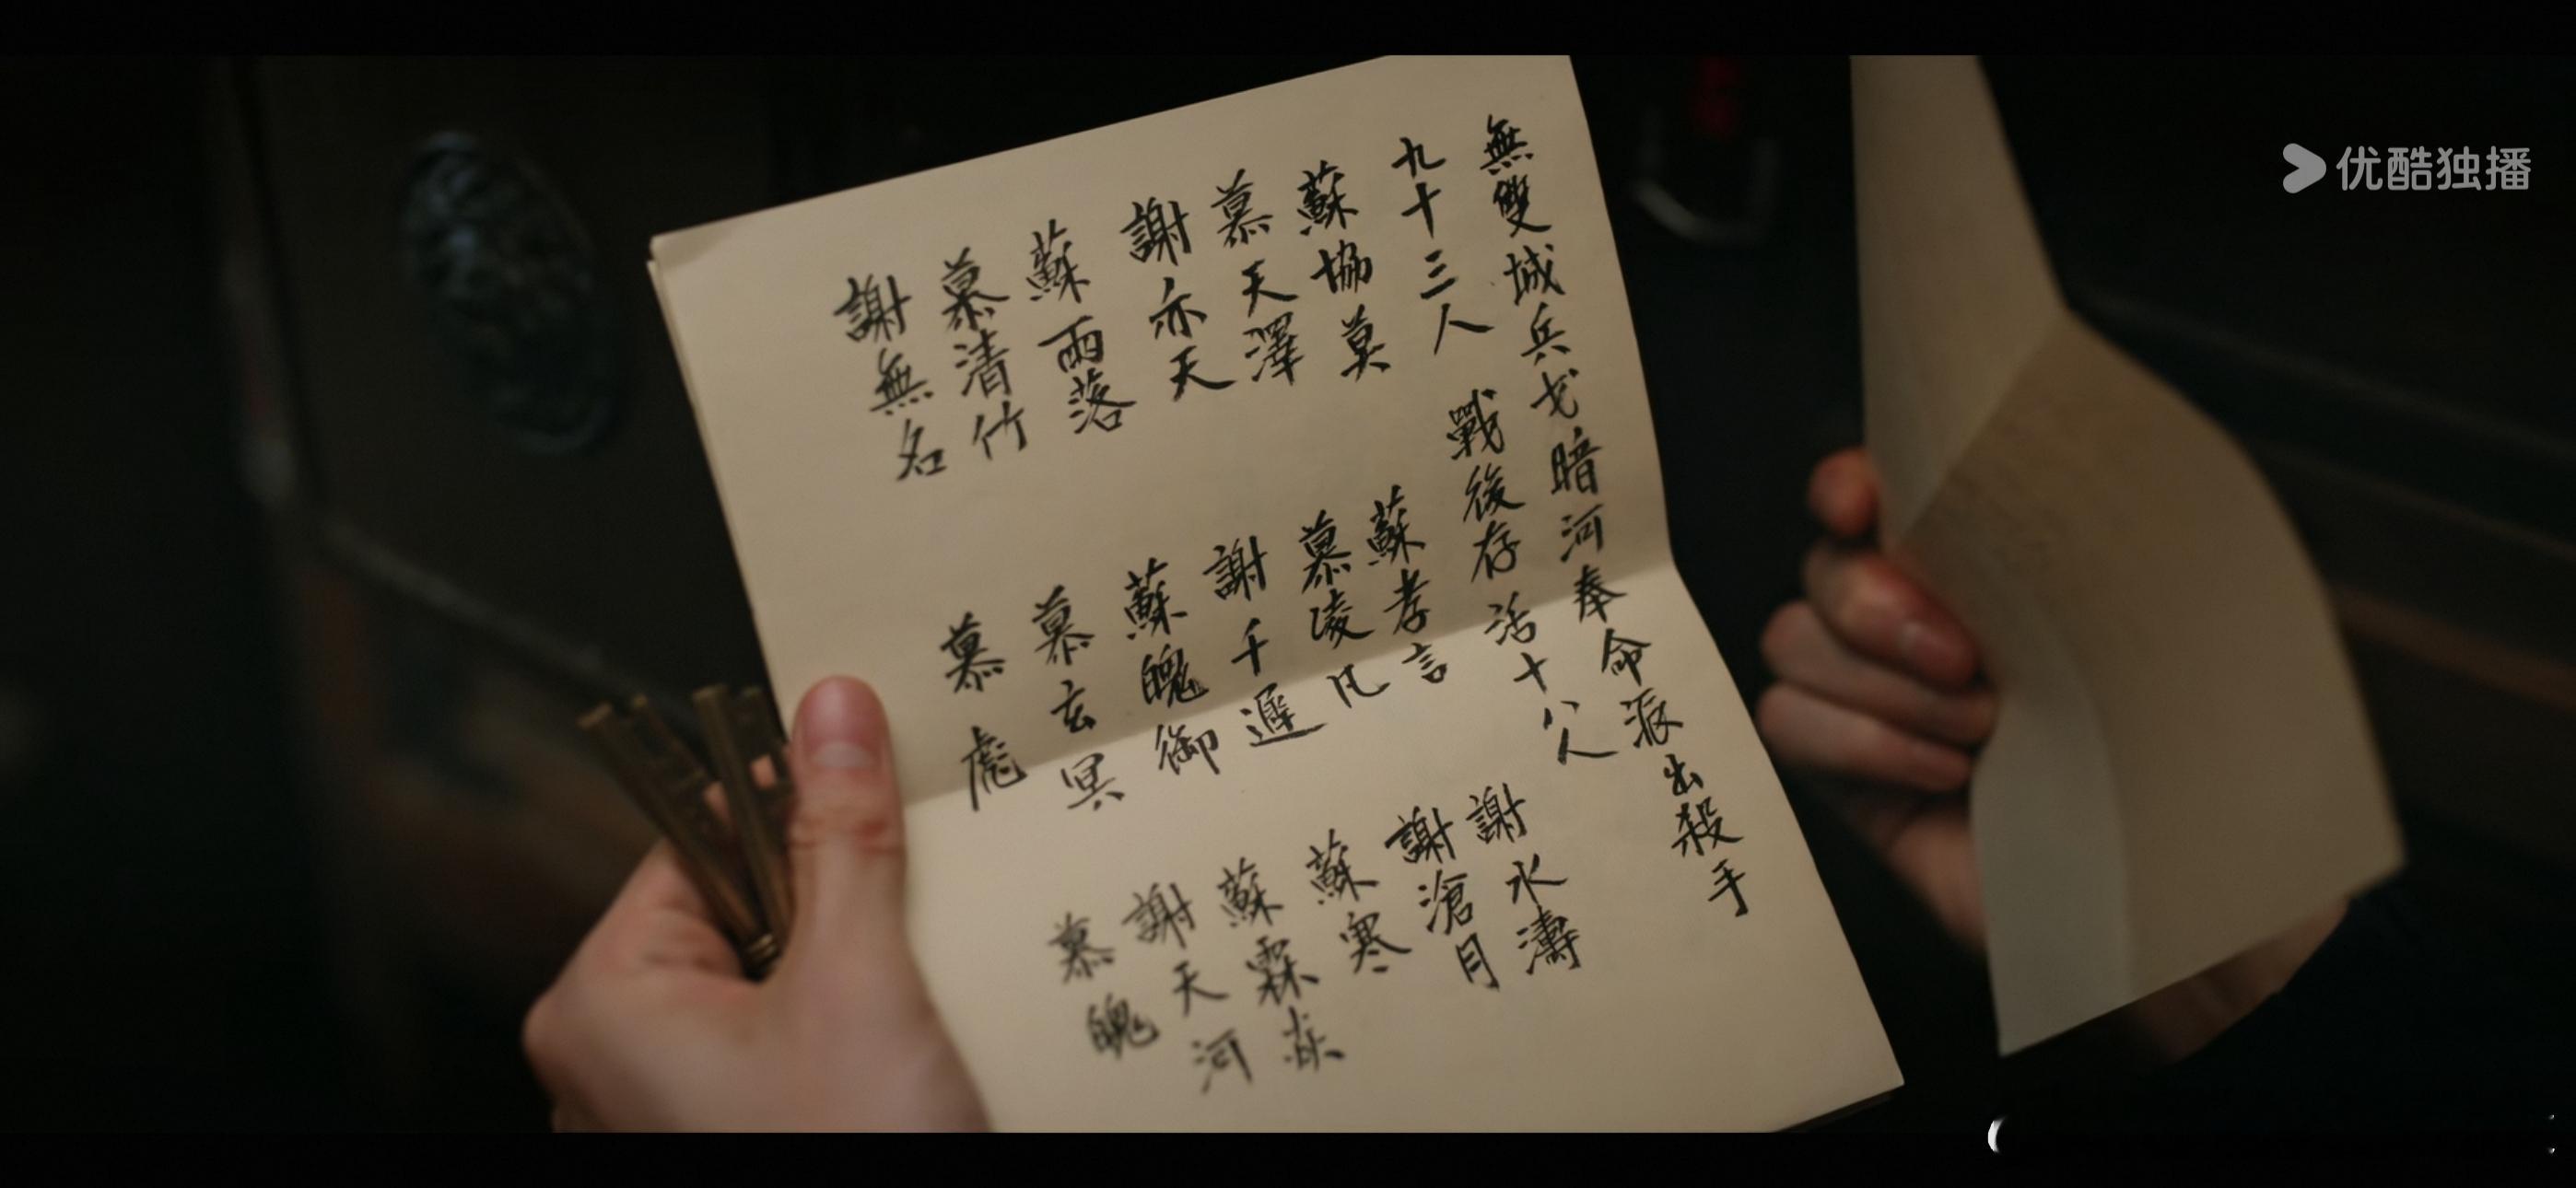 無雙城兵戈暗河奉命派出殺手
九十三人 戰後存活十八人
蘇協莫 蘇孝言 謝水濤
慕天澤 慕凌凡 謝滄月
謝亦天 謝千遲 蘇寒
蘇雨落 蘇魄御 蘇霖
慕清竹 慕玄冥 謝天河
謝無名 慕彪 慕魄
优酷独播